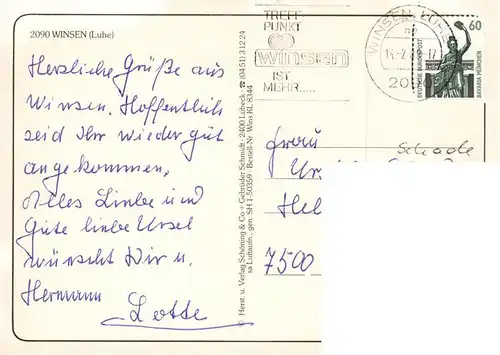 2090 WINSEN (Luhe)
Herzliche Grüße aus
Winsen. Hoffentlich
seid Ihr wieder gut
angekommen,
Alles Liebe und
Gute liebe Ursel
wünscht Dir u.
Hermann
Lotte
© Herst. u. Verlag Schöning & Co + Gebrüder Schmidt · 2400 Lübeck ☎ (04 51) 3 12 24
sa Luftaufn. · gen. SH 1-50359 · Bestell-Nr. Win KL 8344
TREFF-
PUNKT
winsen
IST
MEHR.....
WINSEN, LUHE
20
60
DEUTSCHE BUNDESPOST
BAVARIA MÜNCHEN
Frau
Schade
Ur
Hel
7500